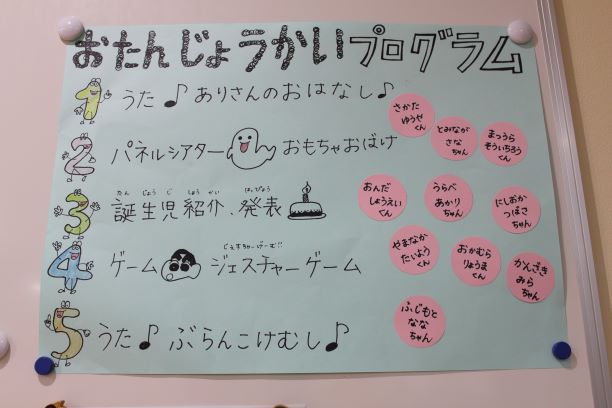 おたんじょうかいプログラム
1 うた♪ ありさんのおはなし♪
2 パネルシアター おもちゃおばけ
たん じょう じ しょう かい はっぴょう
3 誕生児紹介、発表
じぇすちゃーげーむ!!
4 ゲーム ジェスチャーゲーム
5 うた♪ ぶらんこけむし♪
さかた
ゆうせい
くん
とみなが
さな
ちゃん
まつうら
そういちろう
くん
おんだ
しょうえい
くん
うらべ
あかり
ちゃん
にしおか
つばさ
ちゃん
やまなか
たいよう
くん
おかむら
りょうま
くん
かんざき
みら
ちゃん
ふじもと
なな
ちゃん